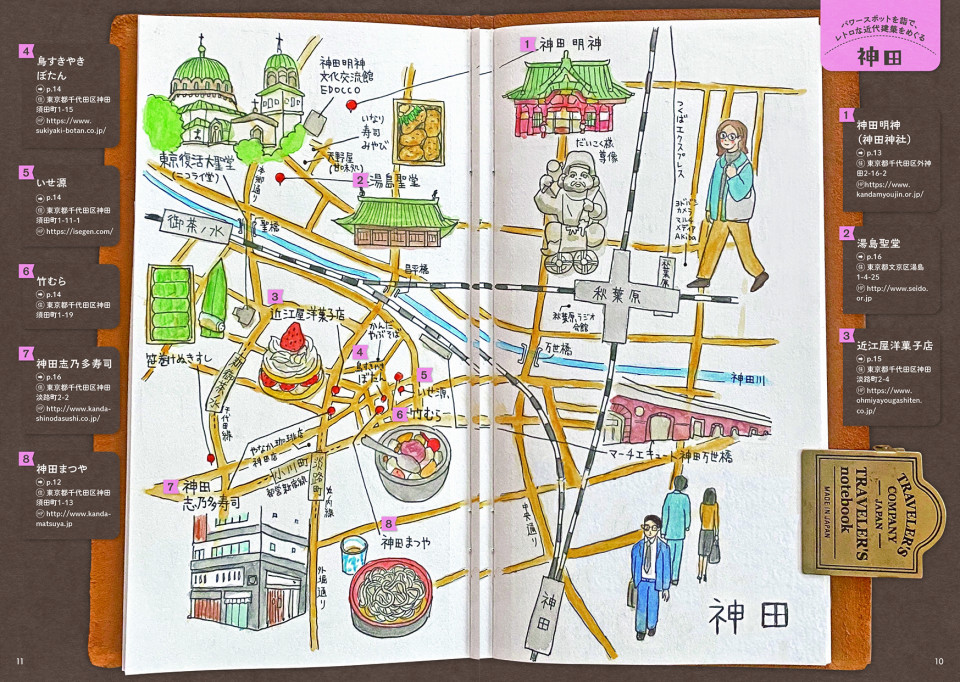 パワースポットを詣で、
レトロな近代建築をめぐる
神田
1
神田明神
(神田神社)
p.13
住 東京都千代田区外神
田2-16-2
https://www.
kandamyoujin.or.jp/
2
湯島聖堂
p.16
住 東京都文京区湯島
1-4-25
http://www.seido.
or.jp
3
近江屋洋菓子店
p.15
住 東京都千代田区神田
淡路町2-4
https://www.
ohmiyayougashiten.
co.jp/
4
鳥すきやき
ぼたん
p.14
住 東京都千代田区神田
須田町1-15
https://www.
sukiyaki-botan.co.jp/
5
いせ源
p.14
住 東京都千代田区神田
須田町1-11-1
https://isegen.com/
6
竹むら
p.14
住 東京都千代田区神田
須田町1-19
7
神田志乃多寿司
p.16
住 東京都千代田区神田
淡路町2-2
http://www.kanda-
shinodasushi.co.jp/
8
神田まつや
p.12
住 東京都千代田区神田
須田町1-13
http://www.kanda-
matsuya.jp
1 神田明神
神田明神
文化交流館
EDOCCO
いなり
寿司
みやび
だいこく様
尊像
つくばエクスプレス
東京復活大聖堂
(ニコライ堂)
天野屋
(甘味処)
本郷通り
2 湯島聖堂
ヨドバシ
カメラ
マルチ
メディア
Akiba
御茶ノ水
聖橋
昌平橋
秋葉原
秋葉原
秋葉原ラジオ
会館
万世橋
神田川
3
近江屋洋菓子店
かんだ
やぶそば
笹巻けぬきすし
新御茶ノ水
千代田線
4
鳥すきやき
ぼたん
5
いせ源
6 竹むら
マーチエキュート神田万世橋
やなか珈琲店
神田店
小川町
都営新宿線
淡路町
丸ノ内線
7 神田
志乃多寿司
8
神田まつや
中央通り
外堀通り
神田
神田
TRAVELER'S
COMPANY
JAPAN
TRAVELER'S
notebook
MADE IN JAPAN
11
10